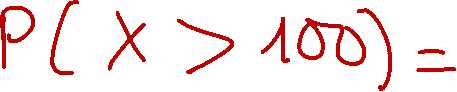 P(X > 100) =